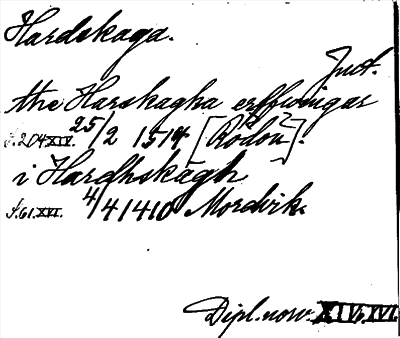 Hardskaga.
Jmt.
the Harskagha erffwingar
s. 204 XIV. 25/2 1514 [Rödön?].
i Hardhskagh
s. 61. XVI. 4/4 1410 Mordvik.
Dipl. norv. XIV, XVI.